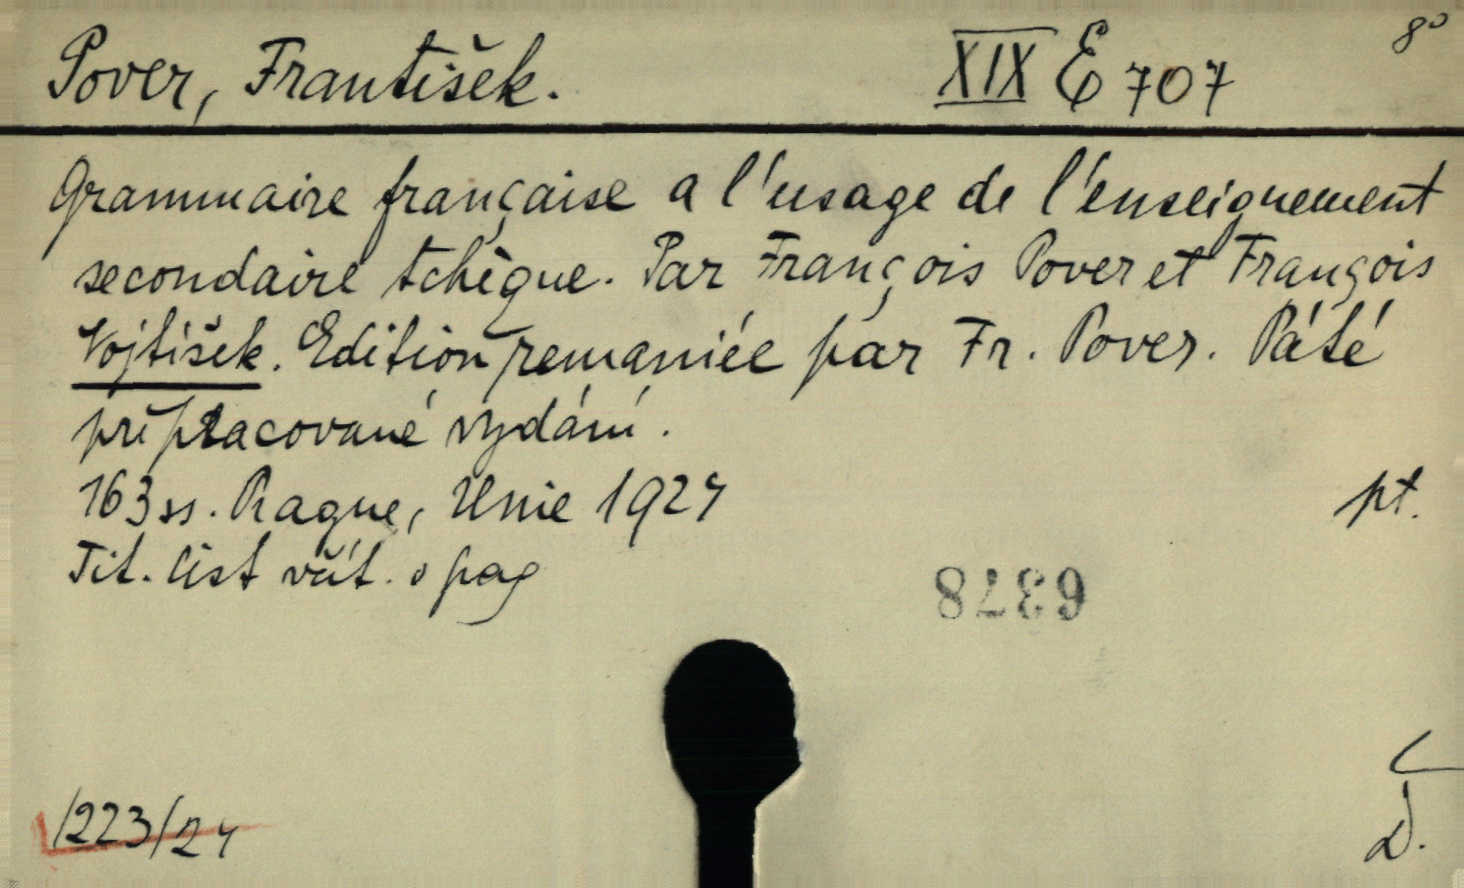 Pover, František. XIX E 707 8°
Grammaire française a l'usage de l'enseignement
secondaire tchèque. Par François Pover et François
Vojtíšek. Edition remaniée par Fr. Pover. Páté
přepracované vydání.
163 ss. Prague, Unie 1924 pt.
Tit. list včít. o pag
6378
1223/24
D.